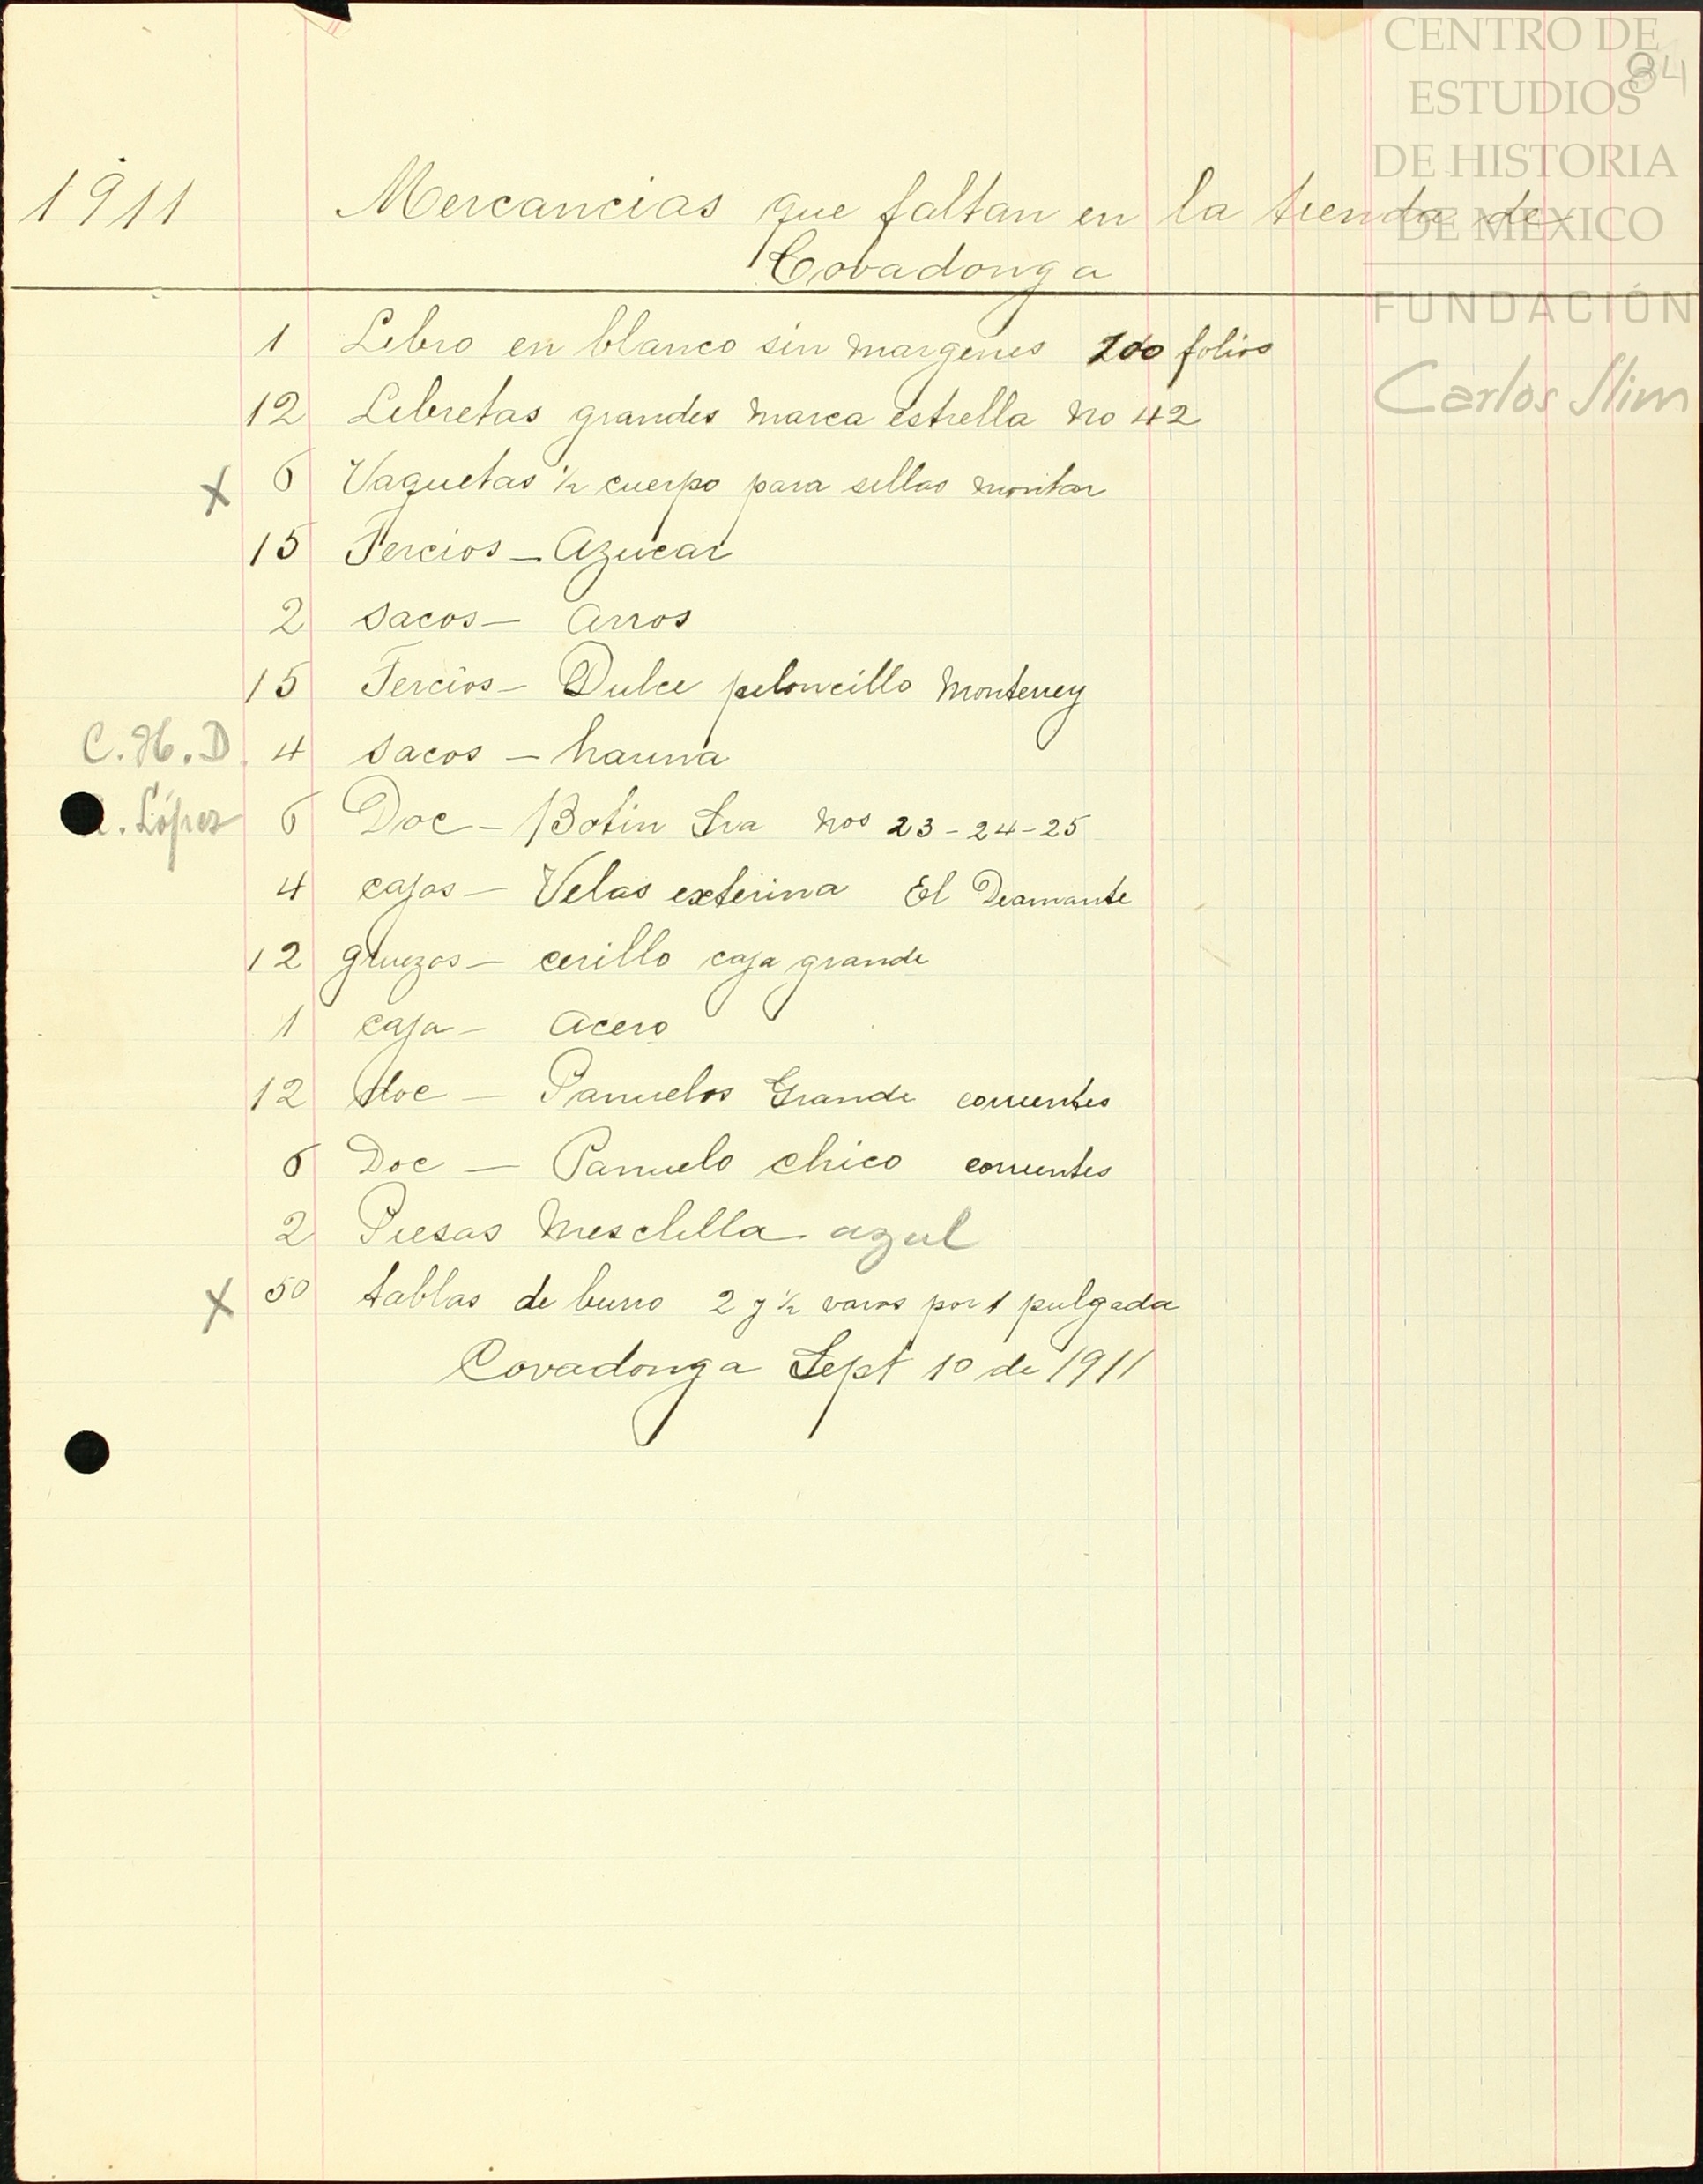 CENTRO DE
ESTUDIOS
DE HISTORIA
DE MÉXICO
FUNDACIÓN
Carlos Slim
84
1911 Mercancias que faltan en la tienda de
Covadonga
1 Libro en blanco sin margenes 200 folios
12 Libretas grandes marca estrella no 42
X 6 Vaquetas ½ cuerpo para sillas montar
15 Tercios - Azucar
2 sacos - Arros
15 Tercios - Dulce piloncillo Monterrey
C.H.D. 4 sacos - harina
López 6 Doc - Botin Sra nos 23-24-25
4 cajas - Velas exterina El Diamante
12 gruezas - cerillo caja grande
1 caja - Acero
12 doc - Panuelos Grande corrientes
6 Doc - Panuelo chico corrientes
2 Piesas Mesclilla azul
X 50 tablas de burro 2 y ½ varas por 1 pulgada
Covadonga Sept 10 de 1911